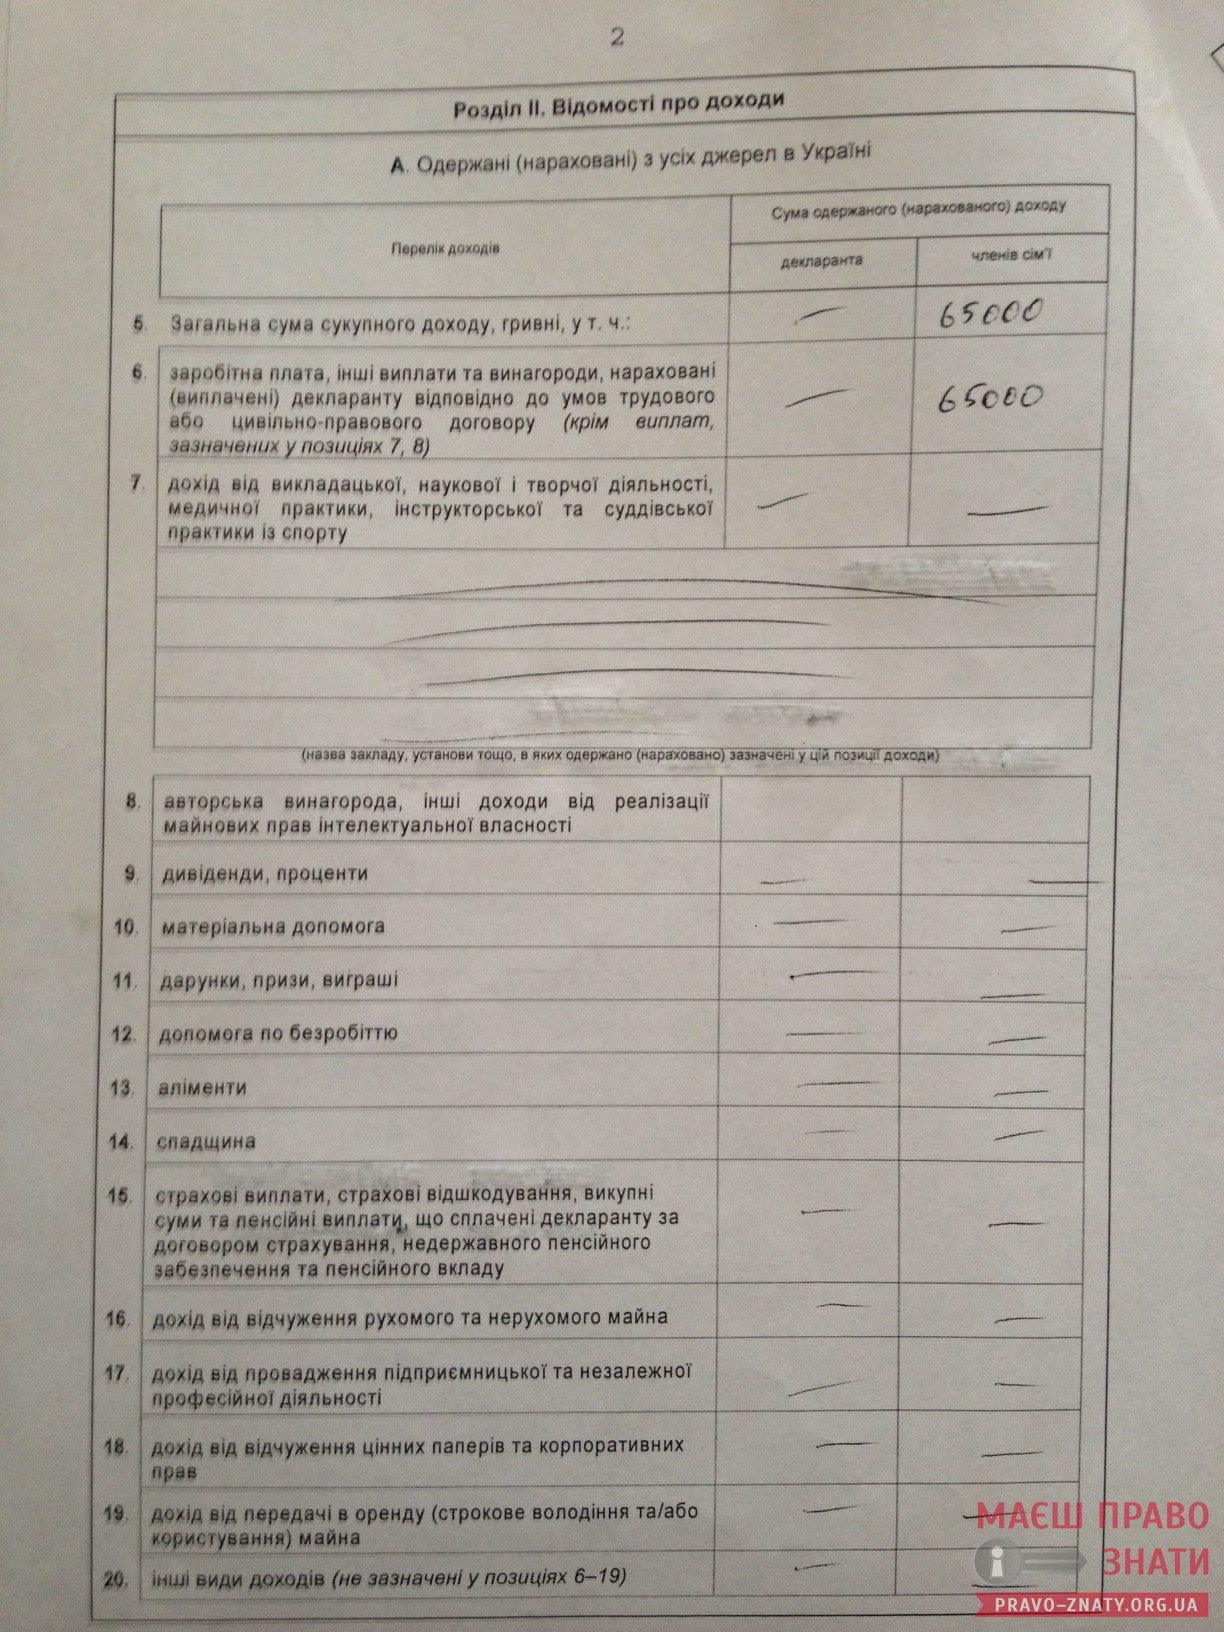 2
Розділ II. Відомості про доходи
А. Одержані (нараховані) з усіх джерел в Україні
Перелік доходів
Сума одержаного (нарахованого) доходу
декларанта
членів сім'ї
5. Загальна сума сукупного доходу, гривні, у т. ч.: — 65000
6. заробітна плата, інші виплати та винагороди, нараховані
(виплачені) декларанту відповідно до умов трудового — 65000
або цивільно-правового договору (крім виплат,
зазначених у позиціях 7, 8)
7. дохід від викладацької, наукової і творчої діяльності,
медичної практики, інструкторської та суддівської — —
практики із спорту
(назва закладу, установи тощо, в яких одержано (нараховано) зазначені у цій позиції доходи)
8. авторська винагорода, інші доходи від реалізації
майнових прав інтелектуальної власності
9. дивіденди, проценти — —
10. матеріальна допомога — —
11. дарунки, призи, виграші — —
12. допомога по безробіттю — —
13. аліменти — —
14. спадщина — —
15. страхові виплати, страхові відшкодування, викупні
суми та пенсійні виплати, що сплачені декларанту за — —
договором страхування, недержавного пенсійного
забезпечення та пенсійного вкладу
16. дохід від відчуження рухомого та нерухомого майна — —
17. дохід від провадження підприємницької та незалежної
професійної діяльності — —
18. дохід від відчуження цінних паперів та корпоративних — —
прав
19. дохід від передачі в оренду (строкове володіння та/або — —
користування) майна
20. інші види доходів (не зазначені у позиціях 6–19) — —
МАЄШ ПРАВО
ЗНАТИ
PRAVO-ZNATY.ORG.UA